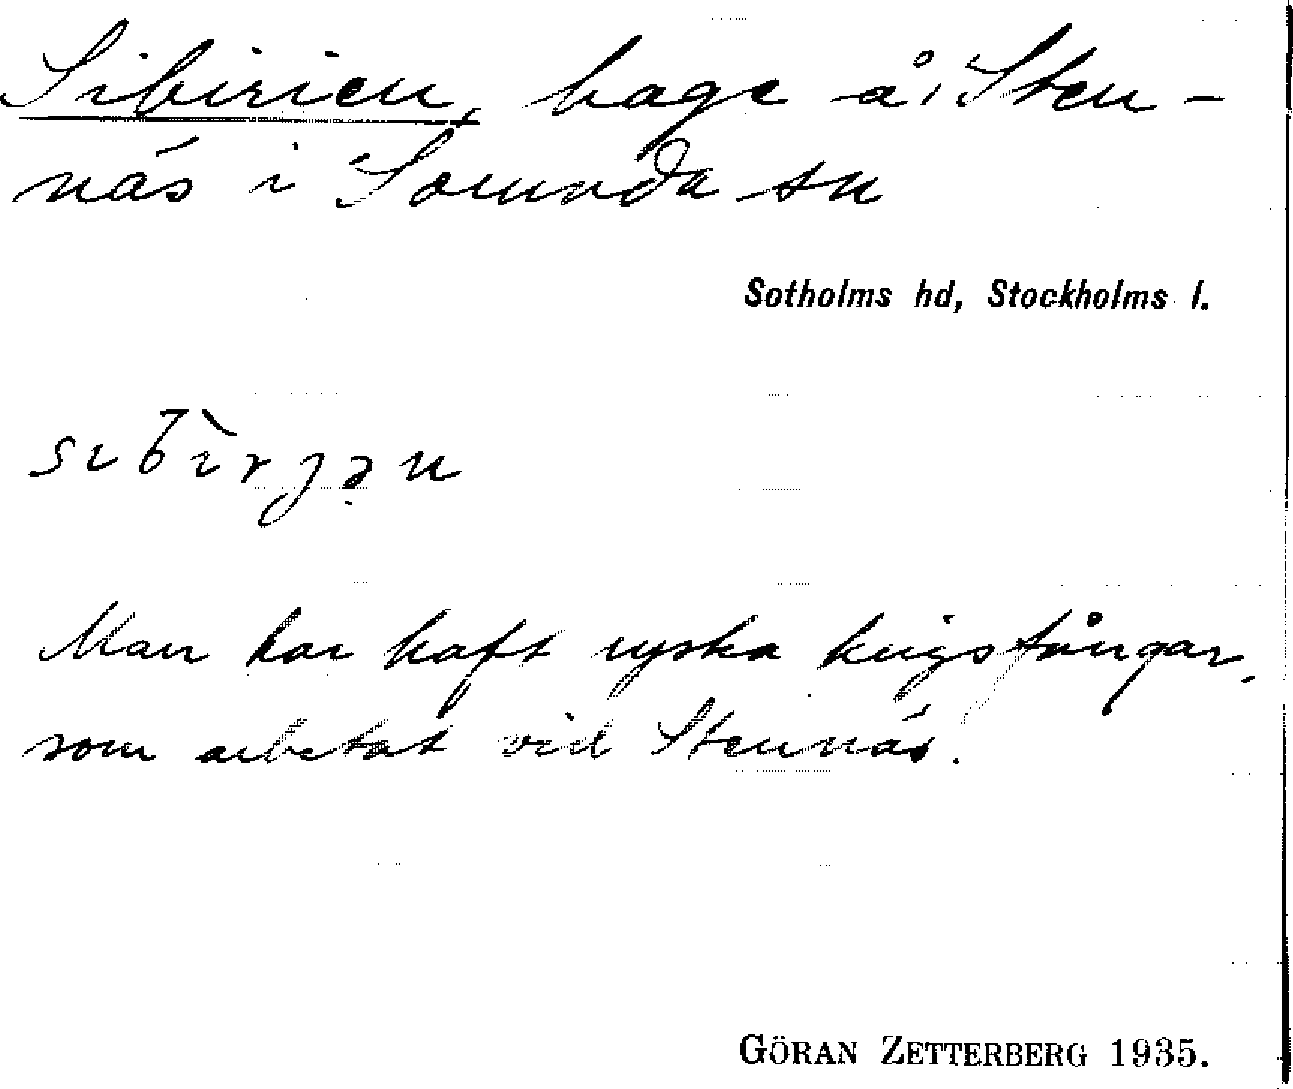 Sibirien, hage å Sten-
näs i Sorunda sn
Sotholms hd, Stockholms l.
sıbìrjən
Man har haft ryska krigsfångar,
som arbetat vid Stennäs.
GÖRAN ZETTERBERG 1935.